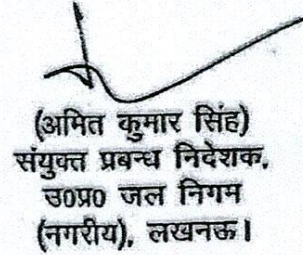 (अमित कुमार सिंह)
संयुक्त प्रबन्ध निदेशक,
उ0प्र0 जल निगम
(नगरीय), लखनऊ।